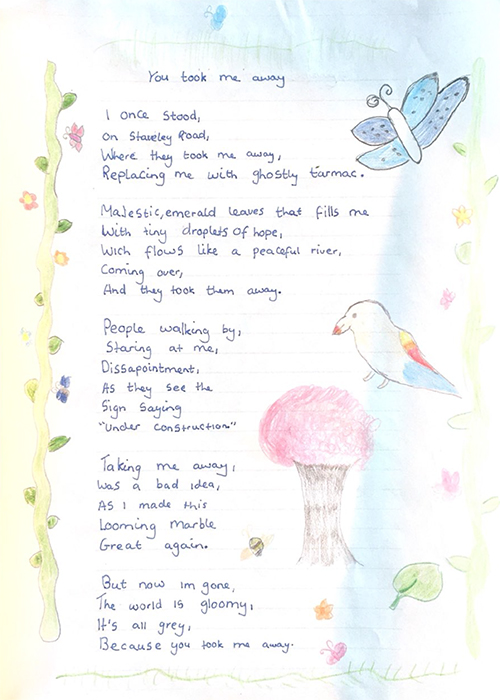 You took me away
I once stood,
On Staveley Road,
Where they took me away,
Replacing me with ghostly tarmac.
Majestic, emerald leaves that fills me
With tiny droplets of hope,
Wich flows like a peaceful river,
Coming over,
And they took them away.
People walking by,
Staring at me,
Dissapointment,
As they see the
Sign saying
"Under construction"
Taking me away,
Was a bad idea,
As I made this
Looming marble
Great again.
But now im gone,
The world is gloomy,
It's all grey,
Because you took me away.